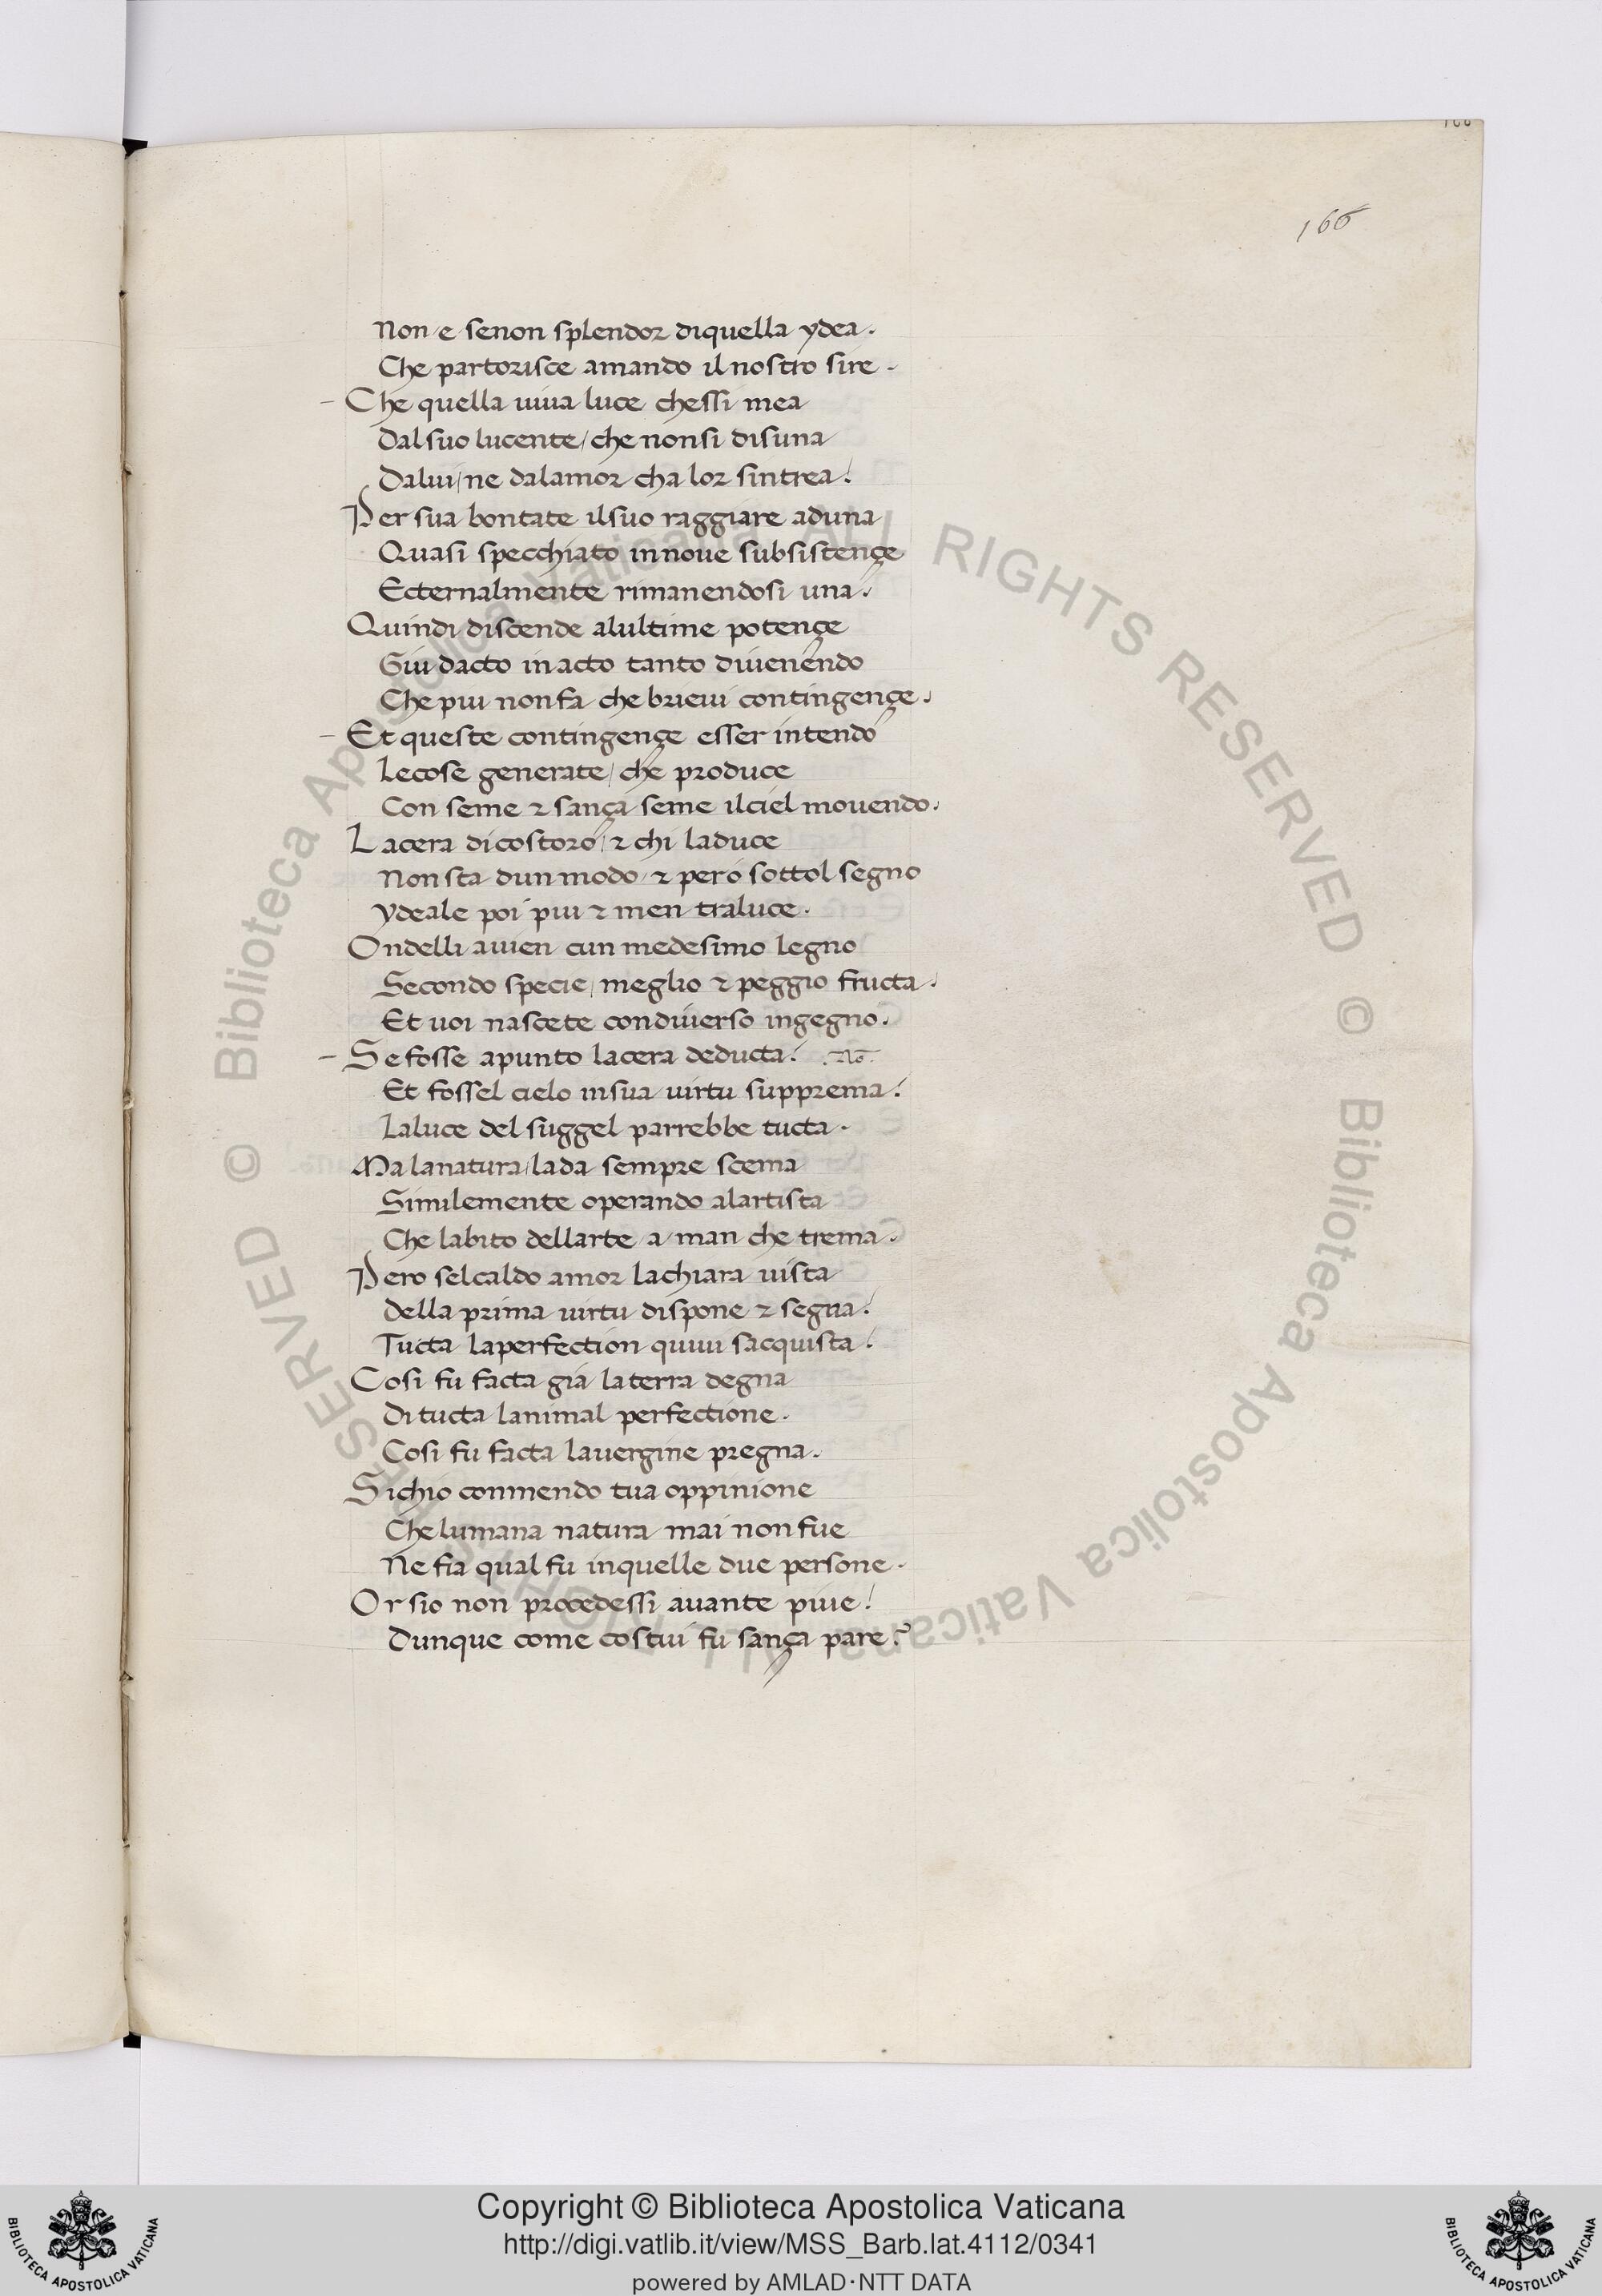 166
166
Non e senon splendor diquella ydea.
Che partorisce amando il nostro sire.
Che quella uiua luce chessi mea
Dal suo lucente/ che nonsi disuna
Dalui/ ne dalamor cha lor sintrea!
Per sua bontate ilsuo raggiare aduna
Quasi specchiato innoue subsistençe
Ecternalmente rimanendosi una!
Quindi discende alultime potençe
Giu dacto in acto tanto diuenendo
Che piu non fa che brieui contingençe.
Et queste contingençe esser intendo
Lecose generate/ che produce
Con seme & sança seme ilciel mouendo.
Lacera di costoro/ & chi laduce
Non sta dun modo/ & però sottol segno
ydeale poi piu & men traluce.
Ondelli auien cun medesimo legno
Secondo specie/ meglio & peggio fructa.
Et uoi nascete condiuerso ingegno.
Se fosse apunto lacera deducta! .No.
Et fossel cielo insua uirtu supprema!
Laluce del suggel parrebbe tucta.
Ma lanatura/ lada sempre scema
Similemente operando alartista
Che labito dellarte a man che trema.
Pero selcaldo amor lachiara uista
della prima uirtu dispone & segna!
Tucta laperfection quiui sacquista!
Cosi fu facta già laterra degna
Di tucta lanimal perfectione.
Cosi fu facta lauergine pregna.
Sichio conmendo tua oppinione
Che lumana natura mai non fue
Ne fia qual fu inquelle due persone.
Or sio non procedessi auante piue!
Dunque come costui fu sança pare?
© Biblioteca Apostolica Vaticana ALL RIGHTS RESERVED © Biblioteca Apostolica Vaticana ALL RIGHTS RESERVED
Copyright © Biblioteca Apostolica Vaticana
http://digi.vatlib.it/view/MSS_Barb.lat.4112/0341
powered by AMLAD·NTT DATA
BIBLIOTECA APOSTOLICA VATICANA
BIBLIOTECA APOSTOLICA VATICANA